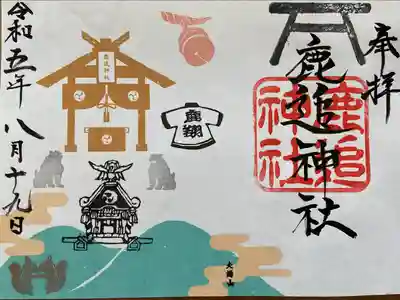 奉拝
鹿追神社
鹿追
神社
鹿追神社
鹿翔
令和五年 八月十九日